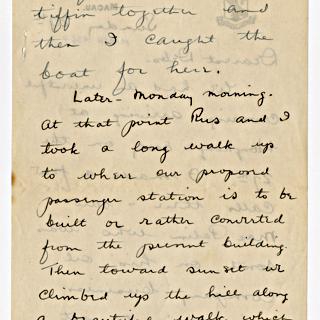 tiffin together and
then I caught the
boat for here.
Later - Monday morning.
At that point Rus and I
took a long walk up
to where our proposed
passenger station is to be
built or rather converted
from the present building.
Then toward sunset we
climbed up the hill along
a beautiful walk which